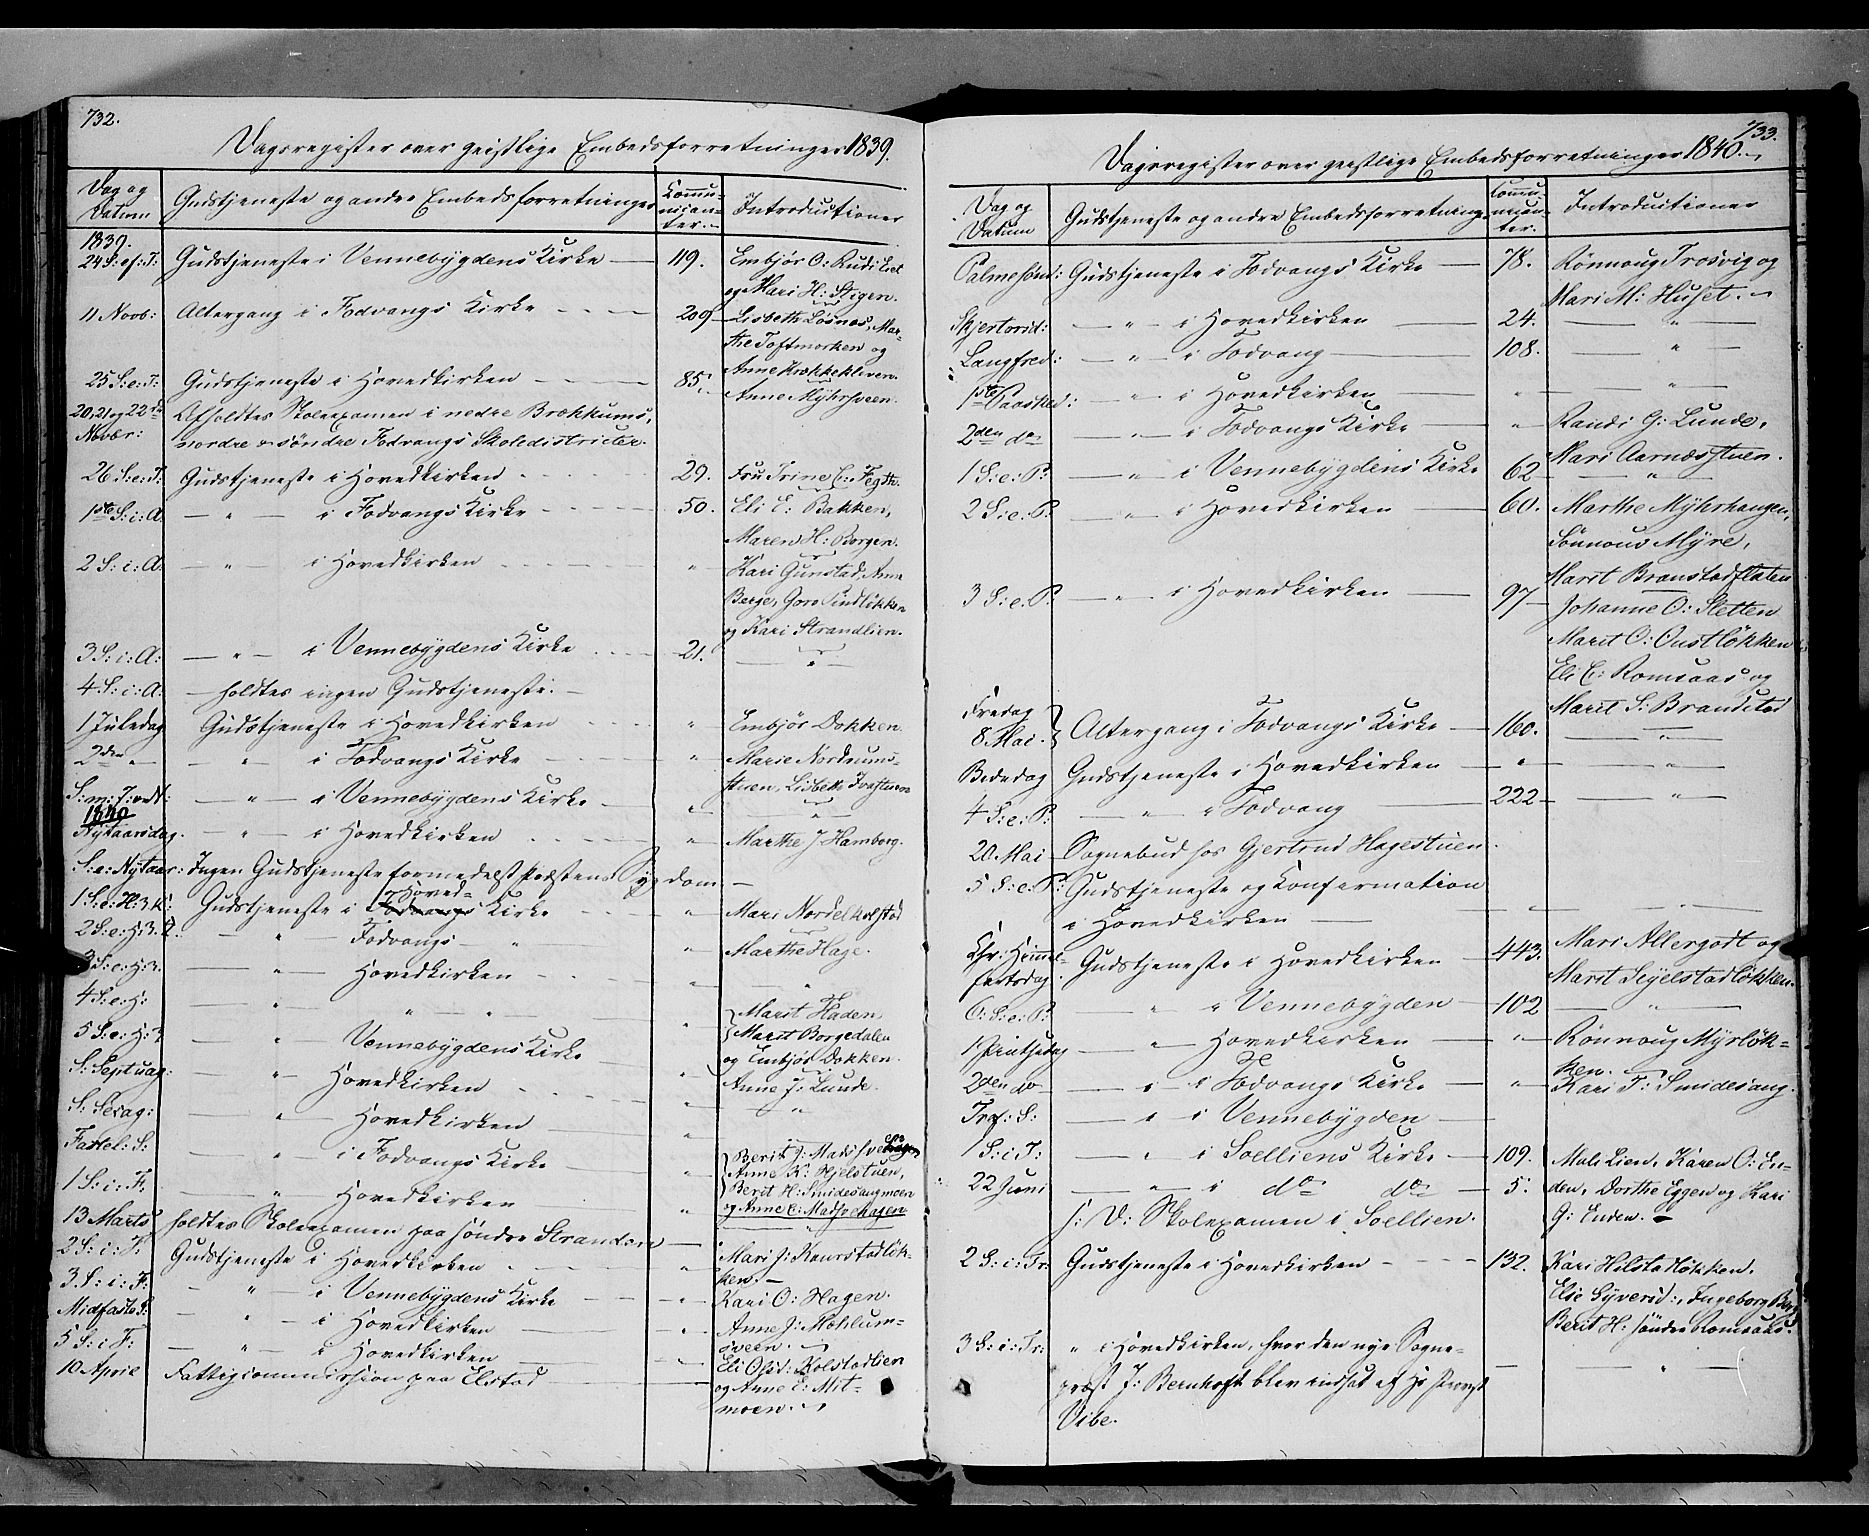 732.
Dagsregister over geistlige Embedsforretninger 1839.
Dag og Datum | Gudstjeneste og andre Embedsforretninger | Commu-nican-ter. | Introductioner
1839.
24 S: ef: T: Gudstjeneste i Vennebygdens Kirke — 119. Embjør O: Rudi
og Mari H: Stigen.
11 Novb: Altergang i Fodvangs Kirke — 209 Lisbeth Losnes, Mar-
the Toftmorken og
Anne Krækkekleven.
25 S: e: T: Gudstjeneste i Hovedkirken — 85. Anne Myhrsveen.
20, 21 og 22de Afholdtes Skoleexamen i nedre Brækkums,
Novbr: nordre & søndre Fodvangs Skoledistricter.
26 S: e: T: Gudstjeneste i Hovedkirken 29. Fru Trine C: Fegth.
1ste S: i: A. — " — i Fodvangs Kirke 50. Eli E: Bakken,
Maren H: Borgen.
2 S: i: A. — " — i Hovedkirken " Kari Gunstad, Anne
Berge, Goro Lindløkken
og Kari Strandlien.
3 S: i: A: — " — i Vennebygdens Kirke 21. — " —
4 S: i: A: — holdtes ingen Gudstjeneste. —
1 Juledag Gudstjeneste i Hovedkirken " Embjør Dokken.
2den " — " — i Fodvangs Kirke " Marie Nordrums-
stuen, Lisbeth Ivastuen
S: m: J: & N: — " — i Vennebygdens Kirke " — " —
1840
Nytaarsdag. — " — i Hovedkirken " Marthe J. Hamborg.
S: e: Nytaar: Ingen Gudstjeneste formedelst Præstens Sygdom —
1 S: e: H: 3 K: Gudstjeneste i Hoved- Kirke " Mari Nordre Kolstad
2 S: e: H: 3. K. — " — Fodvangs — " " Marthe Hage.
3 S: e: H: 3. — " — Hovedkirken " "
4 S: e: H: — " — " — " — Marit Haden,
5 S: e: H: 3 " Vennebygdens Kirke " Marit Borgedalen
og Embjør Dokken.
S: Septuag: — " — Hovedkirken " Anne J: Lunde.
S: Sexag: — " — Hovedkirken " "
Fastel: S: — " — i Fodvangs Kirke " Berit J: Madsve
Anne K: Hjelstuen,
1 S: i: F. " Hovedkirken " Berit H: Smidesangmoen
og Anne E: Madsvehagen
13 Marts holdtes Skoleexamen paa søndre Stranden — "
2 S: i: F: Gudstjeneste i Hovedkirken " Mari J: Kaurstadløk-
ken. —
3. S: i: F. — " — i Vennebygdens Kirke " Kari O: Hagen.
Midfaste S: — " — i Hovedkirken " Anne J: Mæhlum-
sveen.
5 S: i F: — " — i Hovedkirken " Eli Olsd: Kolstadlien
10 April Fattigcommission paa Elstad og Anne E: Mit-
moen.
733.
Dagsregister over geistlige Embedsforretninger 1840.
Dag og Datum | Gudstjeneste og andre Embedsforretninger | Commu-nican-ter. | Introductioner
Palmesønd: Gudstjeneste i Fodvangs Kirke — 78. Rønnoug Trosvig og
Mari M: Huset.
Skjertorsd: — " — i Hovedkirken — 24. — " —
Langfred: — " — i Fodvang 108. — " —
1ste Paasked: — " — i Hovedkirken — " — " —
2den do — " — i Fodvangs Kirke — " Randi G: Lunde,
Mari Aarnæsstuen.
1 S: e: P. — " — i Vennebygdens Kirke 62 — " —
2 S: e: P. — " — i Hovedkirken — 60. Marthe Myhrhaugen,
Sønnous Myre,
Marit Branstadflaten
3 S: e: P. — " — i Hovedkirken — 97 — Johanne O: Sletten
Marit O: Onstløkken
Eli C: Romsaas og
Marit S: Brandstad
Fredag
8 Mai. Altergang i Fodvangs Kirke — 160. — " —
Bededag Gudstjeneste i Hovedkirken — " — " —
4 S: e: P: — " — i Fodvang — 222 — " —
20. Mai Sognebud hos Gjertrud Hagestuen.
5 S: e: P: Gudstjeneste og Confirmation
i Hovedkirken — " — " —
Chr: Himmel-
fartsdag Gudstjeneste i Hovedkirken — 443. Mari Allergodt og
Marit Segelstadløkken.
6: S: e: P. " i Vennebygden — 102 — " —
1 Pintsedag — " — Hovedkirken — " Rønnoug Myrløk-
ken.
2den do — " — i Fodvangs Kirke — " Kari T: Smidesang.
Tref: S: — " — i Vennebygden —
1 S: i T: — " — i Soelliens Kirke — 109. Mali Lien, Karen O: En-
22 Juni — " — i do do — 5. den, Dorthe Eggen og Kari
S: D: Skolexamen i Soellien. J: Enden. —
2 S: i: Tr. Gudstjeneste i Hovedkirken - - - 132. Kari Hilstadløkken.
Else Syversd:, Ingeborg Berg
Berit H: søndre Romsaas.
3 S: i: Tr: " i Hovedkirken, hvor den nye Sogne-
præst J: Bernhoft blev indsat af Hr Provst — — " —
Vibe.